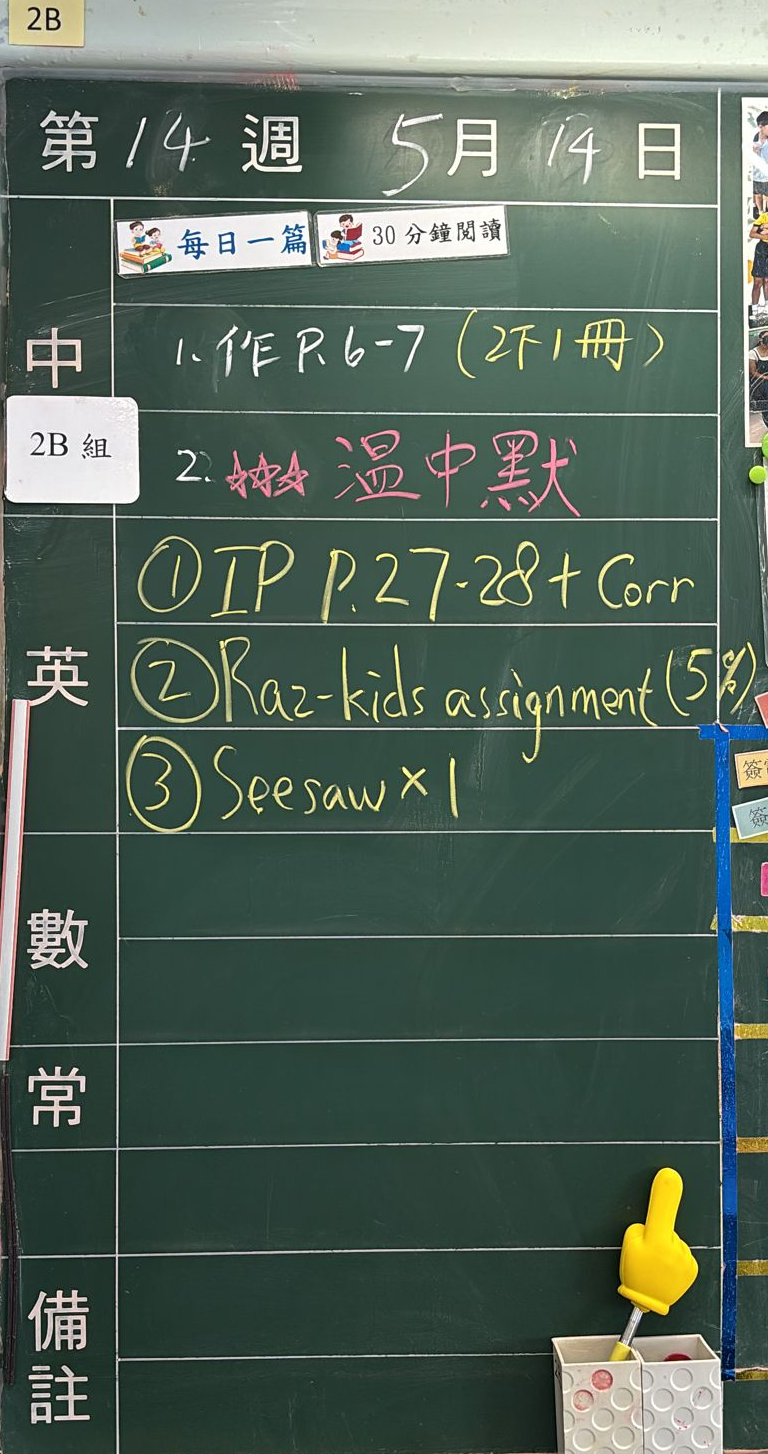 2B
第 14 週 5月 14 日
每日一篇 30 分鐘閱讀
中
1. 作 P.6-7 (2下1冊)
2B 組
2. ☆☆☆ 溫中默
英
① IP P.27-28 + Corr
② Raz-kids assignment (5%)
③ Seesaw × 1
數
常
備註